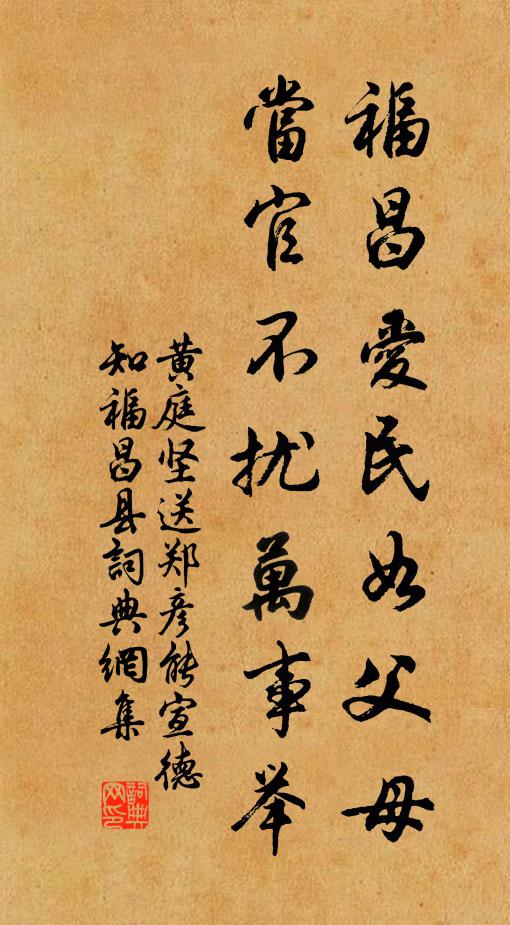 福昌愛民如父母
當官不扰萬事举
黄庭坚送郑彦能宣德
知福昌县詞典網集
詞典
网印